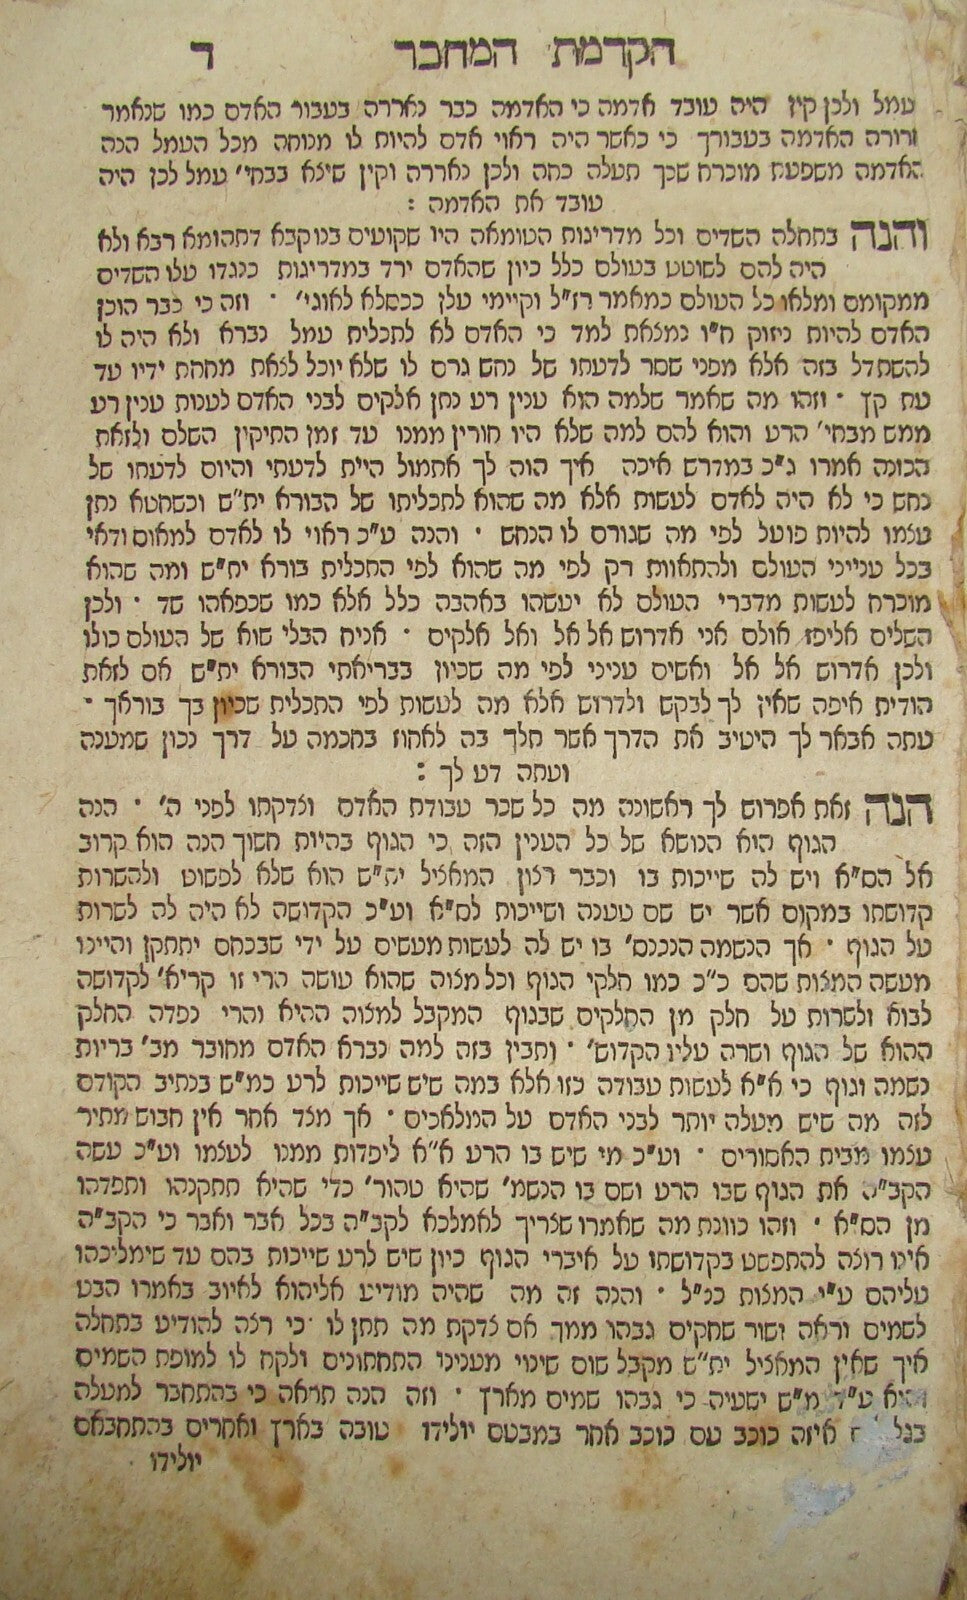 הקדמת המחבר ד
עמל ולכן קין היה עובד אדמה כי האדמה כבר נאררה בעבור האדם כמו שנאמר
ארורה האדמה בעבורך כי כאשר היה ראוי אדם להיות לו מנוחה מכל העמל הנה
האדמה משפעת מוכרח שכך תעלה כחה ולכן נאררה וקין שיצא בבחי' עמל לכן היה
עובד את האדמה :
והנה בתחלה השדים וכל מדרינות הטומאה היו שקועים בנוקבא דתהומא רבא ולא
היה להם לשוטט בעולם כלל כיון שהאדם ירד במדרינות כנגדו עלו השדים
ממקומם ומלאו כל העולם כמאמר רז"ל וקיימי עלן ככסלא לאוגי' · וזה כי כבר הוכן
האדם להיות ניזוק ח"ו נמצאת למד כי האדם לא לתכלית עמל נברא ולא היה לו
להשתדל בזה אלא מפני שסר לדעתו של נחש גרס לו שלא יוכל לצאת מתחת ידיו עד
עת קץ · וזהו מה שאמר שלמה הוא ענין רע נתן אלקים לבני האדם לענות ענין רע
ממש מבחי' הרע והוא להם למה שלא היו חורין ממנו עד זמן התיקון השלם ולזאת
הכונה אמרו ג"כ במדרש איכה איך הוה לך אתמול היית לדעתי והיום לדעתו של
נחש כי לא היה לאדם לעשות אלא מה שהוא לתכליתו של הבורא ית"ש וכשחטא נתן
עצמו להיות פועל לפי מה שגורס לו הנחש · והנה ע"כ ראוי לו לאדם למאוס ודאי
בכל ענייני העולם ולהתאוות רק לפי מה שהוא לפי התכלית בורא ית"ש ומה שהוא
מוכרח לעשות מדברי העולם לא יעשהו באהבה כלל אלא כמו שכפאהו שד · ולכן
השלים אליפז אולם אני אדרוש אל אל ואל אלקים · אניח הבלי שוא של העולם כולו
ולכן אדרוש אל אל ואשים עניני לפי מה שכיון בבריאתי הבורא ית"ש אם לזאת
הודית איפה שאין לך לבקש ולדרוש אלא מה לעשות לפי התכלית שכיון בך בוראך ·
עתה אבאר לך היטיב את הדרך אשר תלך בה לאחוז בחכמה על דרך נכון שמענה
ועתה דע לך :
הנה זאת אפרוש לך ראשונה מה כל שכר עבודת האדם וצדקתו לפני ה' · הנה
הגוף הוא הנושא של כל הענין הזה כי הגוף בהיות חשוך הנה הוא קרוב
אל הס"א ויש לה שייכות בו וכבר רצון המאציל ית"ש הוא שלא לפשוט ולהשרות
קדושתו במקום אשר יש שם טענה ושייכות לס"א וע"כ הקדושה לא היה לה לשרות
על הגוף · אך הנשמה הנכנס' בו יש לה לעשות מעשים על ידי שבכחם יתתקן והיינו
מעשה המצות שהם כ"כ כמו חלקי הגוף וכל מצוה שהוא עושה הרי זו קריא' לקדושה
לבוא ולשרות על חלק מן החלקים שבגוף המקבל למצוה ההיא והרי נפדה החלק
ההוא של הגוף ושרה עליו הקדוש' · ותבין בזה למה נברא האדם מחובר מב' בריות
נשמה וגוף כי א"א לעשות עבודה כזו אלא במה שיש שייכות לרע כמ"ש בנתיב הקודם
לזה מה שיש מעלה יותר לבני האדם על המלאכים · אך מצד אחר אין חבוש מתיר
עצמו מבית האסורים · וע"כ מי שיש בו הרע א"א ליפדות ממנו לעצמו וע"כ עשה
הקב"ה את הגוף שבו הרע ושם בו הנשמ' שהיא טהור' כדי שהיא תתקנהו ותפדהו
מן הס"א · וזהו כוונת מה שאמרו שצריך לאמלכא לקב"ה בכל אבר ואבר כי הקב"ה
אינו רוצה להתפשט בקדושתו על איברי הגוף כיון שיש לרע שייכות בהם עד שימליכהו
עליהם ע"י המצות כנ"ל · והנה זה מה שהיה מודיע אליהוא לאיוב באמרו הבט
לשמים וראה ושור שחקים גבהו ממך אם צדקת מה תתן לו · כי רצה להודיע בתחלה
איך שאין המאציל ית"ש מקבל שום שינוי מענינו התחתונים ולקח לו למופת השמים
והיא ע"ד מ"ש ישעיה כי גבהו שמים מארץ · וזה הנה תראה כי בהתחבר למעלה
איזה כוכב עם כוכב אחר במבטם יולידו טובה בארץ ואחרים בהתחבאם
יולידו